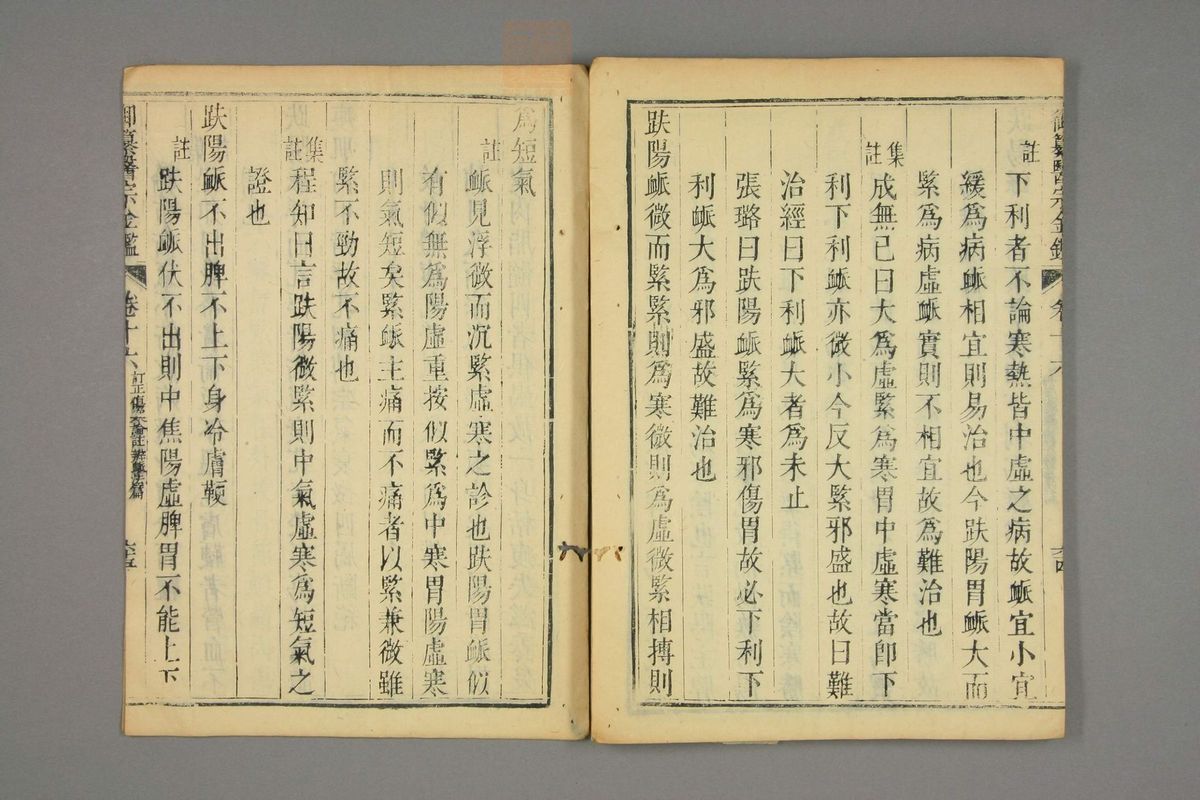 註
下利者不論寒熱皆中虛之病故脈宜小宜
緩爲病脈相宜則易治也今趺陽胃脈大而
緊爲病虛脈實則不相宜故爲難治也
集註
成無已曰大爲虛緊爲寒胃中虛寒當卽下
利下利脈亦微小今反大緊邪盛也故曰難
治經曰下利脈大者爲未止
張璐曰趺陽脈緊爲寒邪傷胃故必下利下
利脈大爲邪盛故難治也
趺陽脈微而緊緊則爲寒微則爲虛微緊相搏則
爲短氣
註
脈見浮微而沉緊虛寒之診也趺陽胃脈似
有似無爲陽虛重按似緊爲中寒胃陽虛寒
則氣短矣緊脈主痛而不痛者以緊兼微雖
緊不勁故不痛也
集註
程知曰言趺陽微緊則中氣虛寒爲短氣之
證也
趺陽脈不出脾不上下身冷膚鞕
註
趺陽脈伏不出則中焦陽虛脾胃不能上下
御纂醫宗金鑑
卷十六
訂正傷寒論註辨脈法篇